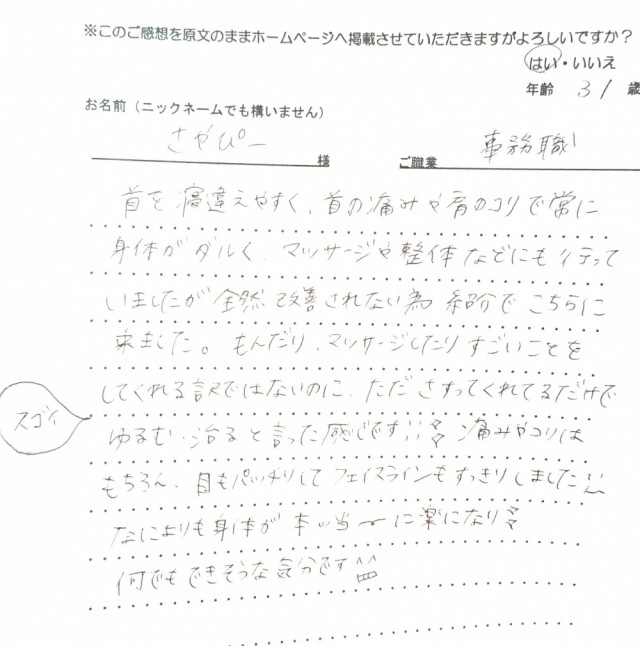 ※このご感想を原文のままホームページへ掲載させていただきますがよろしいですか?
はい・いいえ
年齢 31 歳
お名前（ニックネームでも構いません）
さやぴー 様 ご職業 事務職
首を寝違えやすく、首の痛みや肩のコリで常に
身体がダルく、マッサージや整体などにも行って
いましたが全然改善されない為 紹介でこちらに
来ました。もんだり、マッサージしたりすごいことを
してくれる訳ではないのに、たださすってくれてるだけで
スゴイ
ゆるむ・治ると言った感じです!! 痛みやコリは
もちろん、目もパッチリしてフェイスラインもすっきりしました
なによりも身体が本ッ当〜に楽になり
何でもできそうな気分です